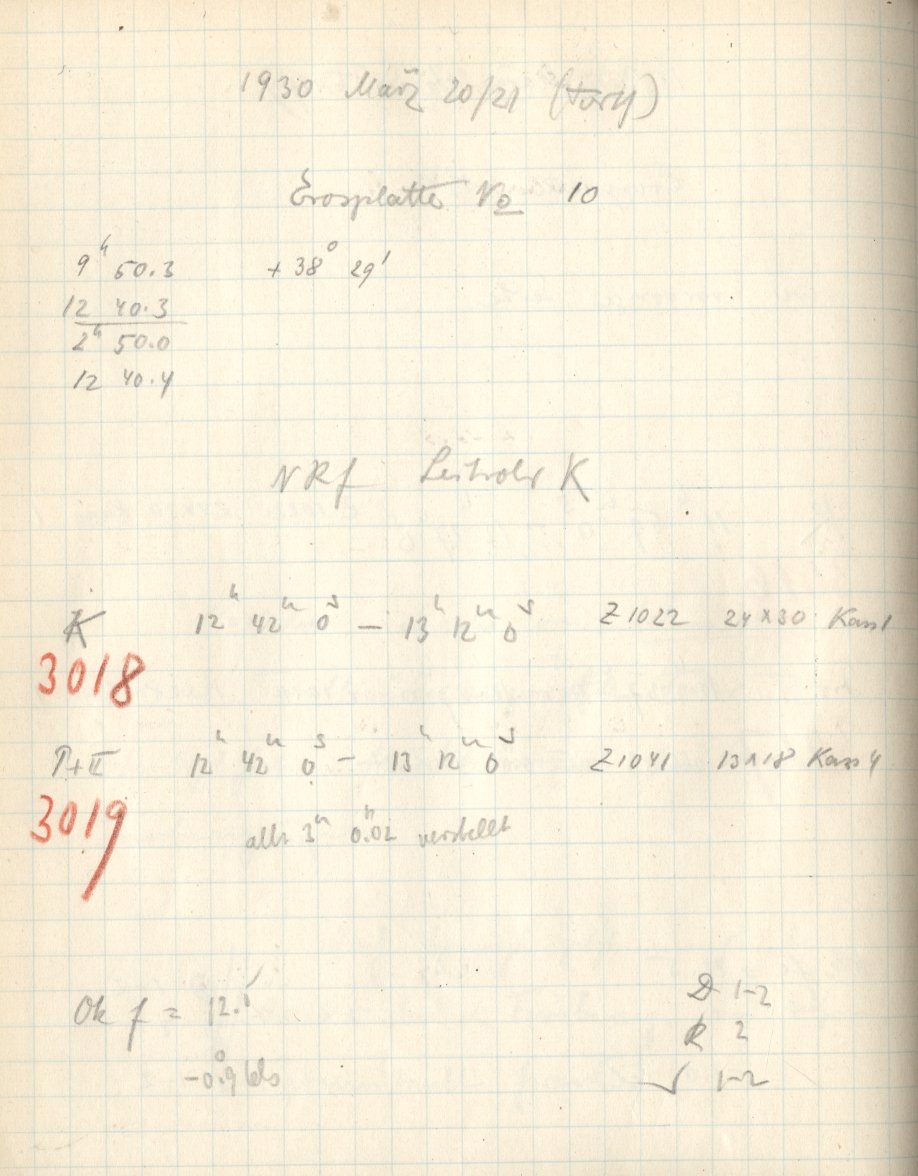 1930 März 20/21
Erosplatte No 10
9ʰ 50.3 + 38° 29'
12 40.3
2ʰ 50.0
12 40.4
NRf Leitrohr K
K 12ʰ 42ᵐ 0ˢ – 13ʰ 12ᵐ 0ˢ Z 1022 24x30 Kass 1
3018
P+II 12ʰ 42ᵐ 0ˢ – 13ʰ 12ᵐ 0ˢ Z 1041 13x18 Kass 4
3019
alle 3ᵐ 0.02 verstellt
Ok f = D 1-2
R 2
1-2